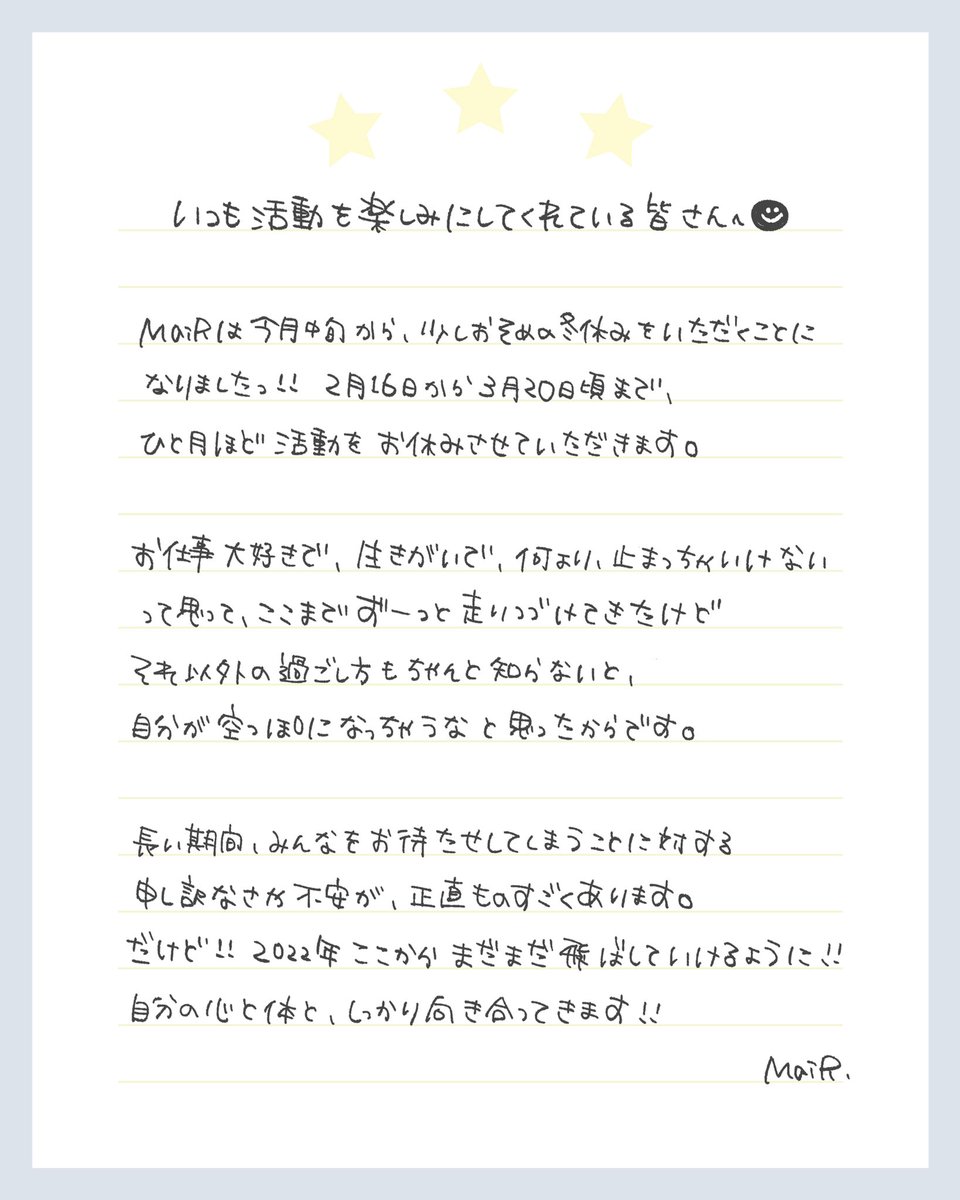 いつも活動を楽しみにしてくれている皆さんへ
MaiRは今月中旬から、少しおそめの冬休みをいただくことに
なりましたっ!! 2月16日から3月20日頃まで、
ひと月ほど活動をお休みさせていただきます。
お仕事大好きで、生きがいで、何より、止まっちゃいけない
って思って、ここまでずーっと走りつづけてきたけど
それ以外の過ごし方もちゃんと知らないと、
自分が空っぽになっちゃうなと思ったからです。
長い期間、みんなをお待たせしてしまうことに対する
申し訳なさや不安が、正直ものすごくあります。
だけど!! 2022年ここからまだまだ飛ばしていけるように!!
自分の心と体と、しっかり向き合ってきます!!
MaiR.